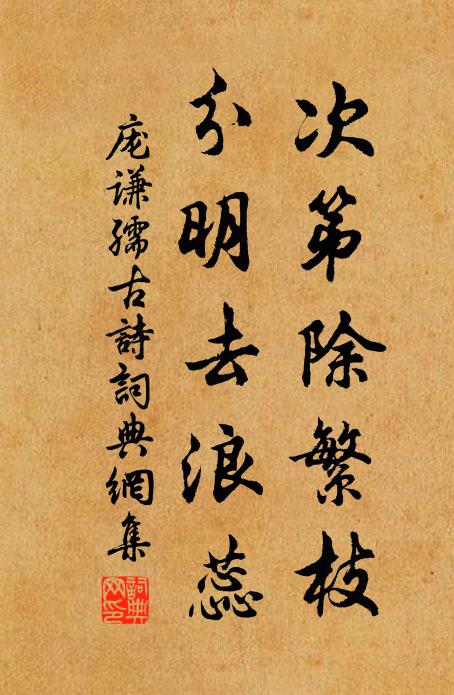 次第除繁枝
分明去浪蕊
庞谦孺古詩詞典網集
詞典網印